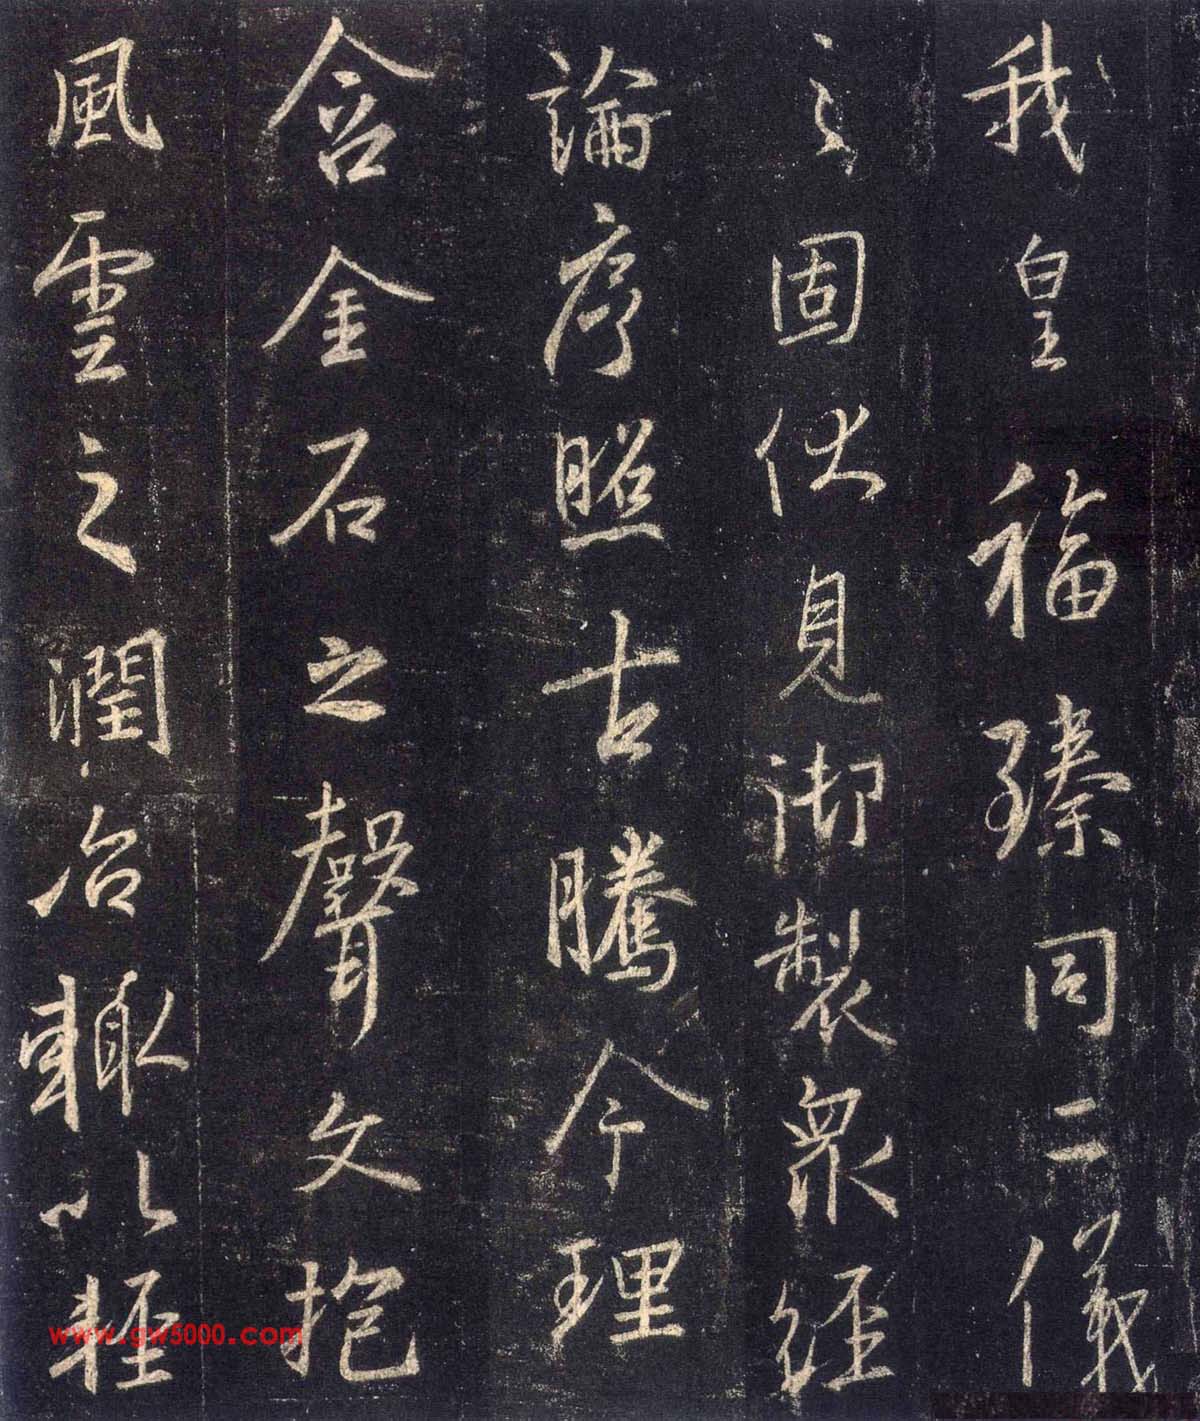 我皇福臻同二儀
之固伏見御製眾經
論序照古騰今理
含金石之聲文抱
風雲之潤治輒以輕
www.gw5000.com